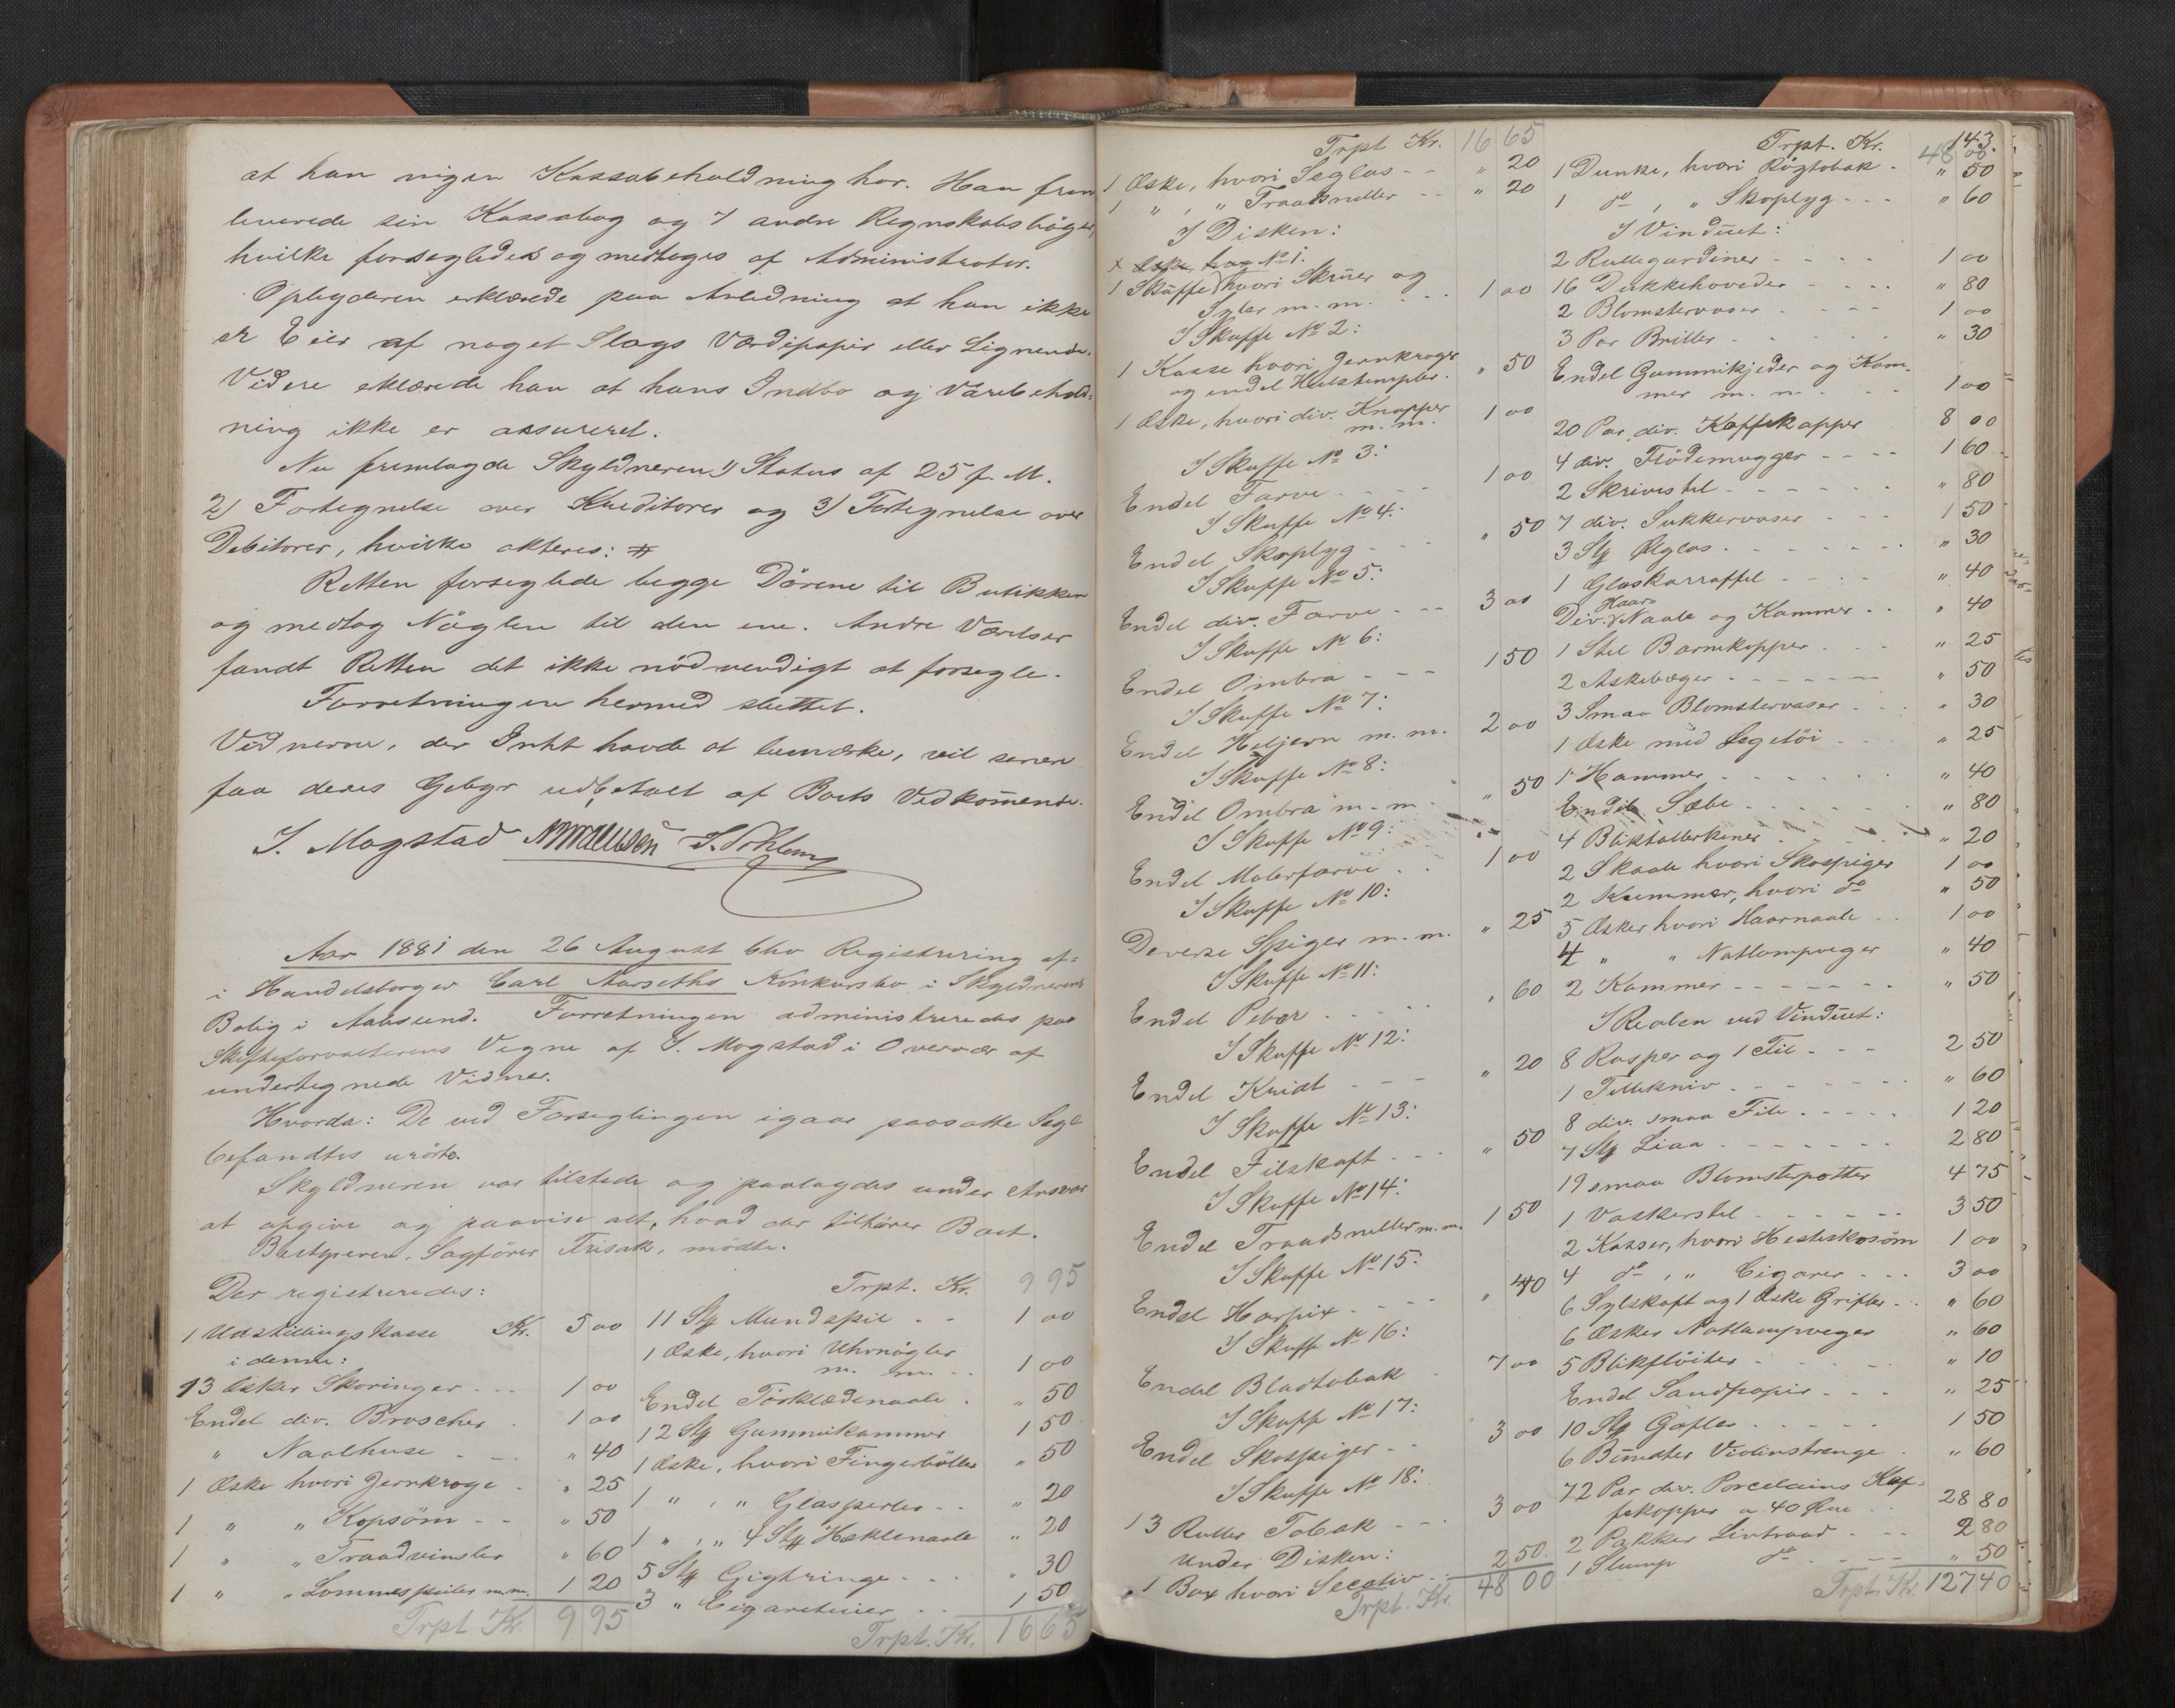 at han ingen Kassabeholdning har. Han frem
leverede sin Kassabog og 7 andre Regnskabsbøger,
hvilke forsegledes og medtoges af Administrator.
Opbyderen erklærede paa Anledning at han ikke
er Eier af noget Slags Værdipapir eller Lignende.
Videre eklærede han at hans Indbo og Varebehold-
ning ikke er assureret.
Nu fremlagde Skyldneren 1) Status af 25 f. M.
2) Fortegnelse over Kreditorer og 3) Fortegnelse over
Debitorer, hvilke akteres: #
Retten forseglede begge Dörene til Butikken
og medtog Nöglen til den ene. Andre Værelser
fandt Retten det ikke nödvendigt at forsegle.
Forretningen hermed sluttet.
Vidnerne, der Intet havde at bemærke, vil senere
faa deres Gebyr udbetalt af Boets Vedkommende.
I. Mogstad
Aar 1881 den 26 August blev Registrering af-
i Handelsborger Carl Aarseths Konkursbo i Skyldnerens
Bolig i Aalesund. Forretningen administreredes paa
Skifteforvalterens Vegne af I. Mogstad i Overvær af
undertegnede Vidner.
Hvorda: De ved Forseglingen igaar paasatte Segl
befandtes urörte.
Skyldneren var tilstede og paalagdes under Ansvar
at opgive og paavise alt, hvad der tilhörer Boet.
Bestyreren, Sagförer Frisak, mödte.
Der registreredes:
1 Udstillingskasse Kr. 5 00
i denne:
13 Æsker Skoringer - - - 1 00
Endel div. Broscher - 1 00
" Naalhuse - - - " 40
1 Æske hvori Jernkroge - " 25
1 " " Kopsöm - - " 50
1 " " Traadvinsler " 60
1 " " Lommespeiler m.m. 1 20
Trpt Kr. 9 95
Trpt. Kr. 9 95
11 Stk Mundspil - - 1 00
1 Æske, hvori Uhrnögler
m. m. - - 1 00
Endel Törklædenaale - " 50
12 Stk Gummikammer 1 50
1 Æske, hvori Fingerböller " 50
1 " , " Glasperler - - " 20
1 " , " 4 Stk Heklenaale " 20
5 Stk Gigtringe - - - " 30
3 " Cigaretuier - - 1 50
Trpt. Kr. 16 65
Trpt Kr. 16 65
1 Æske, hvori Seglas - - " 20
1 " , " Traadsneller - - " 20
I Disken:
No 1:
1 Skuffe hvori Skruer og
Syler m. m. - - - 1 00
I Skuffe No 2:
1 Kasse hvori Jernkroger
og endel Hulstempler - " 50
1 Æske, hvori div. Knapper
m. m. 1 00
I Skuffe No 3:
Endel Farve - - - 1 00
I Skuffe No 4:
Endel Skoplyg - - - " 50
I Skuffe No 5:
Endel div. Farve - - - 3 00
I Skuffe No 6:
Endel Ombra - - - 1 50
I Skuffe No 7:
Endel Heljern m. m. 2 00
I Skuffe No 8:
Endel Ombra m. m. " 50
I Skuffe No 9:
Endel Malerfarve - - 1 00
I Skuffe No 10:
Deverse Spiger m. m. " 25
I Skuffe No 11:
Endel Peber - - - - " 60
I Skuffe No 12:
Endel Kridt - - - " 20
I Skuffe No 13:
Endel Filskaft - - - " 50
I Skuffe No 14:
Endel Traadsneller m. m. 1 50
I Skuffe No 15:
Endel Harpix - - - - " 40
I Skuffe No 16:
Endel Bladtobak - 7 00
I Skuffe No 17:
Endel Skospiger - - 3 00
I Skuffe No 18:
13 Ruller Tobak - - - 3 00
Under Disken:
1 Box hvori Secativ - - 2 50
Trpt. Kr. 48 00
143.
Trpt. Kr. 48 00
1 Dunke, hvori Rögtobak - " 50
1 do , " Skoplyg - - - " 60
I Vinduet:
2 Rullegardiner - - - - 1 00
16 Dukkehoveder - - - - " 80
2 Blomstervaser - - - - 1 00
3 Par Briller - - - - - " 30
Endel Gummikjeder og Kam-
mer m. m. - - - 1 00
20 Par div. Kaffekopper 8 00
4 div. Flödemugger - - - - 1 60
2 Skrivestel - - - - - - " 80
7 div. Sukkervaser - - - 1 50
3 Stk Ølglas - - - - - - " 30
1 Glaskarraffel - - - - " 40
Div. Haar Naale og Kammer - - " 40
1 Stel Barnekopper - - - " 25
2 Askebæger - - - - - - " 50
3 Smaa Blomstervaser - - - " 30
1 Æske med Legetöi - - - " 25
1 Hammer - - - - - - " 40
Endel Sæbe - - - - - - " 80
4 Bliktallerkener - - - - " 20
2 Skaale hvori Skospiger 1 00
2 Krummer, hvori do " 50
5 Æsker hvori Haarnaale - - 1 00
4 " " Natlampveger " 40
2 Kammer - - - - - - " 50
I Reolen ved Vinduet:
8 Rasper og 1 Fil - - - 2 50
1 Tellekniv - - - - - - " 60
8 div. smaa File - - - - - 1 20
7 Stk Liaa - - - - - - - 2 80
19 smaa Blomsterpotter 4 75
1 Vaskerstel - - - - - - 3 50
2 Kasser, hvori Hesteskosöm 1 00
4 do , " Cigarer - - - 3 00
6 Sylskaft og 1 Æske Grifler - - " 60
6 Æsker Natlampveger " 60
5 Blikflöiter - - - - - " 10
Endel Sandpapir - - - " 25
10 Stk Gafler - - - - - 1 50
6 Bundter Violinstrenge - " 60
72 Par div. Porcelains Kaf-
fekopper a 40 Øre - - 28 80
2 Pakker Lintraad - - - 2 80
1 Slump do - - - - " 50
Trpt. Kr. 127 40